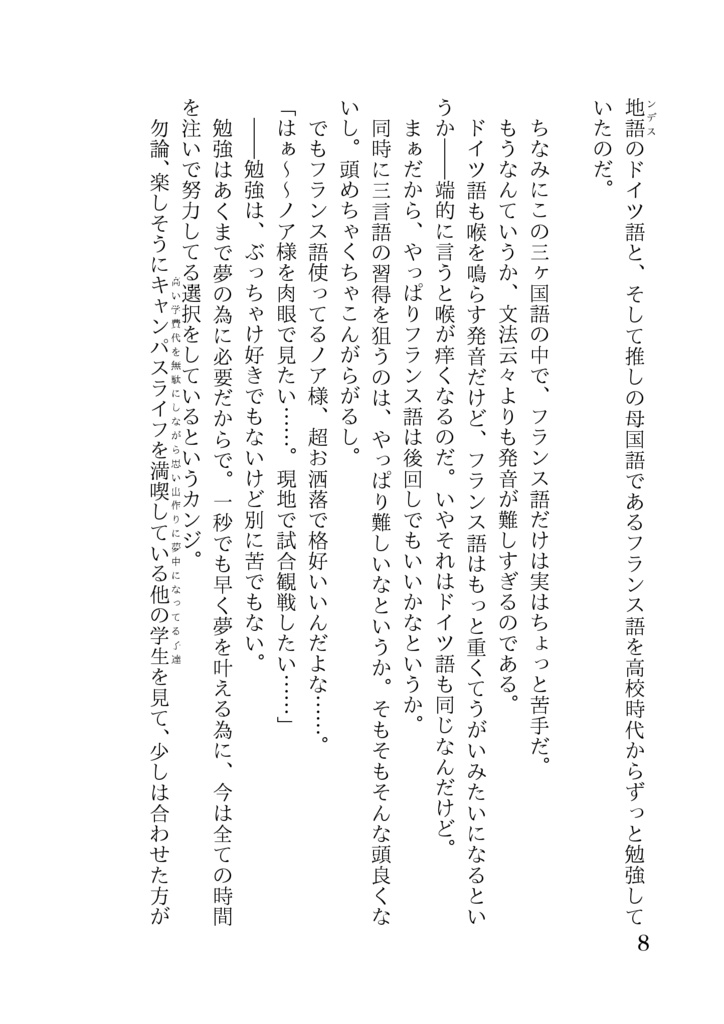 地語のドイツ語と、そして推しの母国語であるフランス語を高校時代からずっと勉強して
ンデス
いたのだ。
ちなみにこの三ヶ国語の中で、フランス語だけは実はちょっと苦手だ。
もうなんていうか、文法云々よりも発音が難しすぎるのである。
ドイツ語も喉を鳴らす発音だけど、フランス語はもっと重くてうがいみたいになるとい
うか――端的に言うと喉が痒くなるのだ。いやそれはドイツ語も同じなんだけど。
まぁだから、やっぱりフランス語は後回しでもいいかなというか。
同時に三言語の習得を狙うのは、やっぱり難しいなというか。そもそもそんな頭良くな
いし。頭めちゃくちゃこんがらがるし。
でもフランス語使ってるノア様、超お洒落で格好いいんだよな……。
「はぁ〜〜ノア様を肉眼で見たい……。現地で試合観戦したい……」
――勉強は、ぶっちゃけ好きでもないけど別に苦でもない。
勉強はあくまで夢の為に必要だからで。一秒でも早く夢を叶える為に、今は全ての時間
を注いで努力してる選択をしているというカンジ。
勿論、楽しそうにキャンパスライフを満喫している他の学生を見て、少しは合わせた方が
高い学費代を無駄にしながら思い出作りに夢中になってる子達
8